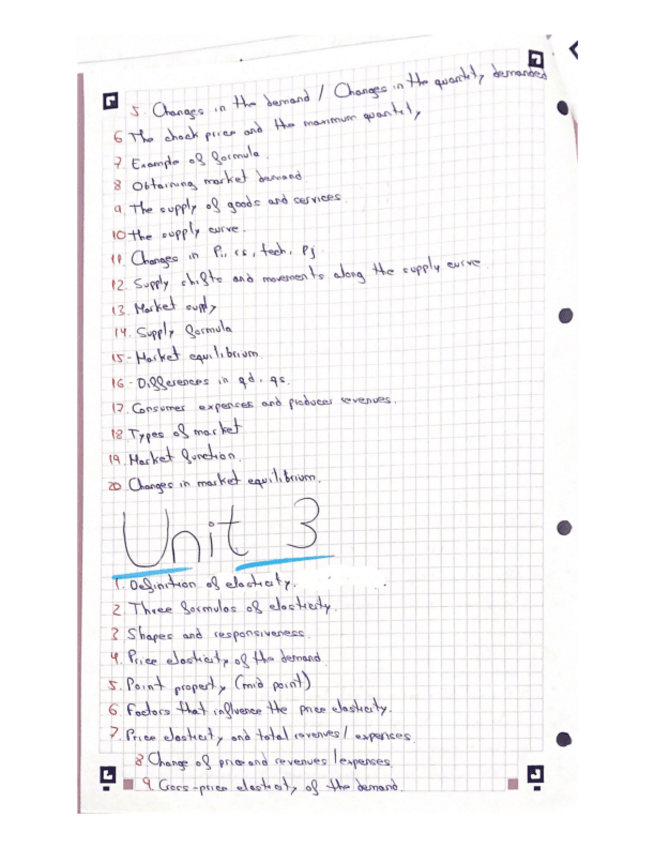 5. Changes in the demand / Changes in the quantity demanded
6 The chock price and the maximum quantity
7 Example of formula.
8 Obtaining market demand
9. The supply of goods and services.
10 the supply curve.
11. Changes in Pi, cs, tech, Pj.
12. Supply shifts and movements along the supply curve
13. Market supply
14. Supply formula
15- Market equilibrium.
16- Differences in qd, qs.
17. Consumer expences and producer revenues.
18 Types of market
19. Market function.
20 Changes in market equilibrium.
Unit 3
1. Definition of elasticity.
2. Three formulas of elasticity.
3 Shapes and responsiveness.
4. Price elasticity of the demand
5. Point property (mid point)
6 Factors that influence the price elasticity.
7. Price elasticity and total revenues / expences
8. Change of price and revenues / expences
9. Cross-price elasticity of the demand.